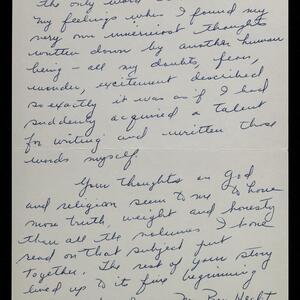 the only word
my feelings when I found my
very own innermost thoughts
written down by another human
being - all my doubts, fears,
wonder, excitement described
so exactly it was as if I had
suddenly acquired a talent
for writing and written those
words myself.
Your thoughts on God
and religion seem to me to have
more truth, weight and honesty
than all the volumes I have
read on that subject put
together. The rest of your story
lived up to its fine beginning
Mr. Ben Hecht